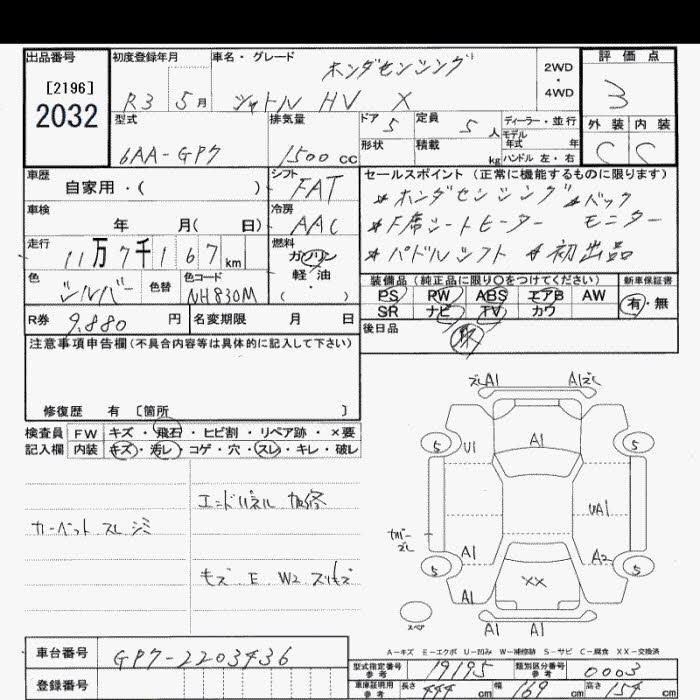 出品番号 初度登録年月 車名・グレード ホンダセンシング 2WD・4WD 評価点
[2196]
2032
R3 5月 シャトル HV X 3
型式 排気量 ドア 5 定員 5人 ディーラー・並行 外装 内装
6AA-GP7 1500cc 形状 積載 kg モデル年式 年 ハンドル 左・右 C C
車歴 自家用・( ) シフト FAT セールスポイント (正常に機能するものに限ります)
車検 年 月( 日) 冷房 AAC
*ホンダセンシング *バックモニター
*F席シートヒーター
*パドルシフト *初出品
走行 11万7千167km 燃料 ガソリン 軽油 ・( )
色 シルバー 色替 色コード NH830M
装備品 (純正品に限り○をつけてください) 新車保証書
PS PW ABS エアB AW 有・無
SR ナビ TV カワ
R券 9,880円 名変期限 月 日 後日品 取
注意事項申告欄 (不具合内容等は具体的に記入して下さい)
修復歴 有 [箇所 ]
検査員 FW キズ・飛石・ヒビ割・リペア跡・×要
記入欄 内装 キズ・汚レ・コゲ・穴・スレ・キレ・破レ
エンドパネル 加修
カーペット スレ シミ
モズ E W2 スリキズ
ズレ A1 A1 ズレ
5 U1 A1 5
UA1
カバーズレ
A1 A2
5 XX 5
A1
スペア A1 A1
A-キズ E-エクボ U-凹み W-補修跡 S-サビ C-腐食 XX-交換済
車台番号 GP7-2203436
登録番号
型式指定番号 参考 19195 類別区分番号 参考 0003
車庫証明用 参考 長さ 444cm 幅 169cm 高さ 154cm